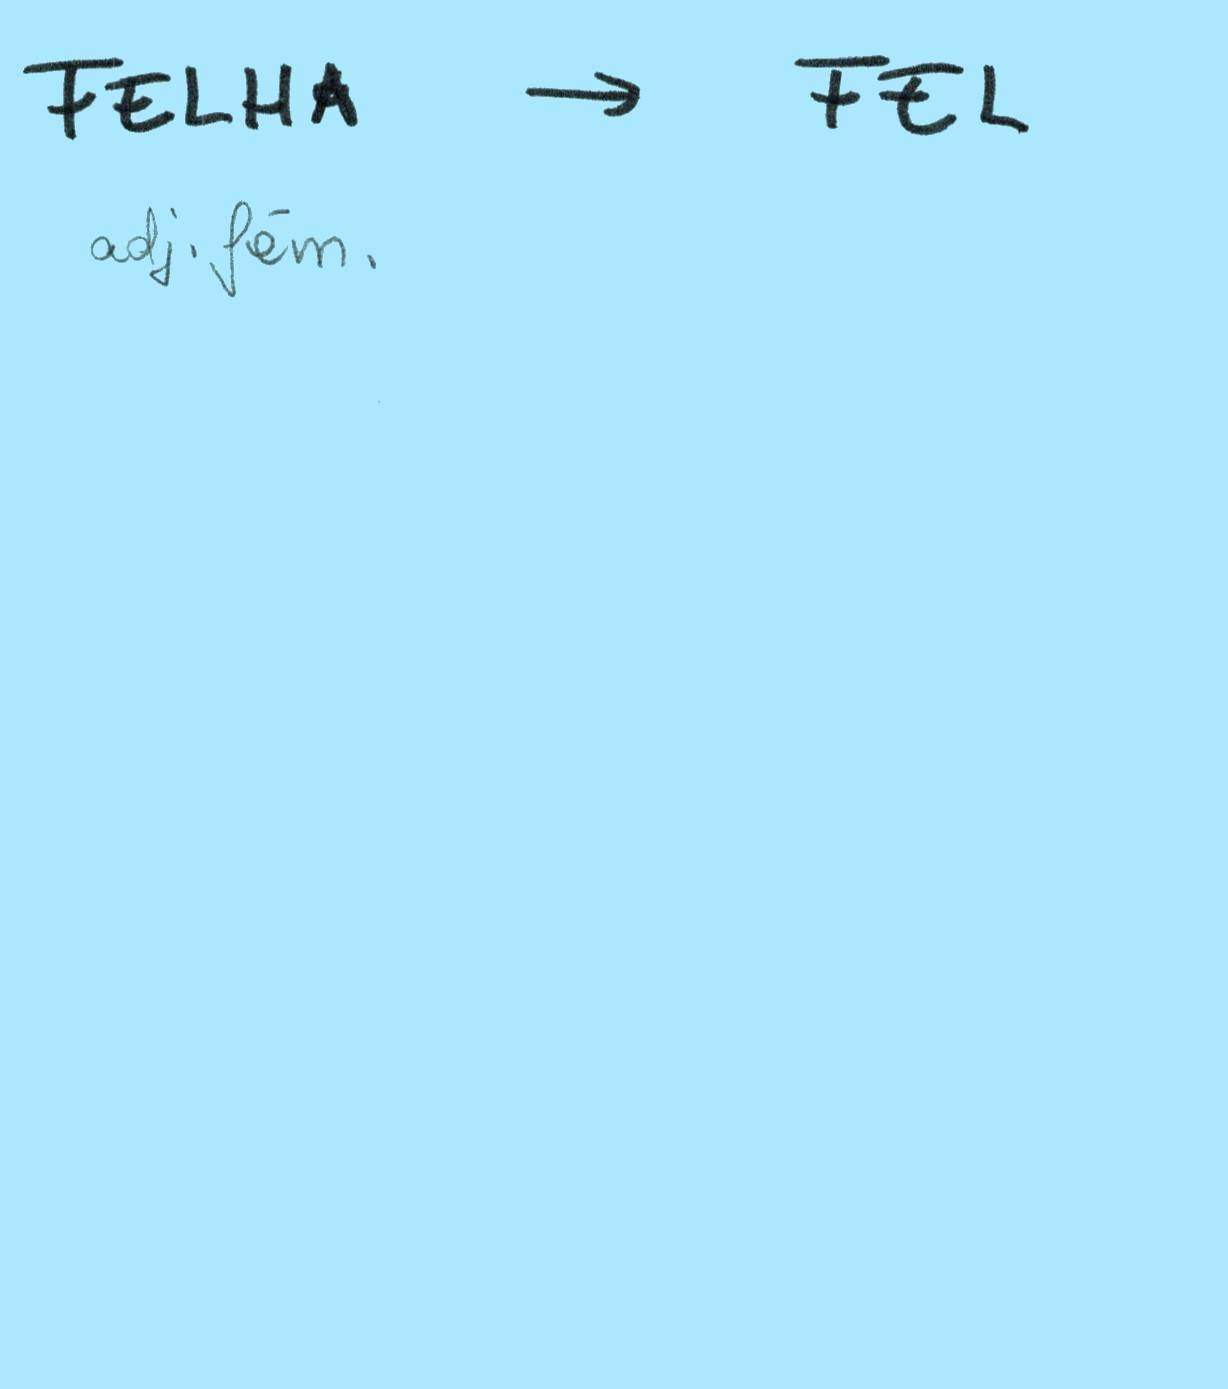 FELHA → FEL
adj. fém.